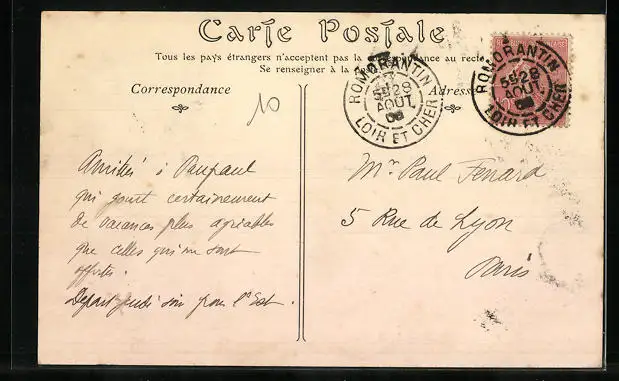 Carte Postale
Tous les pays étrangers n'acceptent pas la correspondance au recto
Se renseigner à la
Correspondance
Adresse
10
ROMORANTIN
28
AOUT
LOIR ET CHER
ROMORANTIN
28
AOUT
LOIR ET CHER
Amitiés à Paupaul
qui jouit certainement
de vacances plus agréables
que celles qui me sont
offertes.
Départ jeudi soir pour l'Est.
Mr Paul Fenard
5 Rue de Lyon
Paris